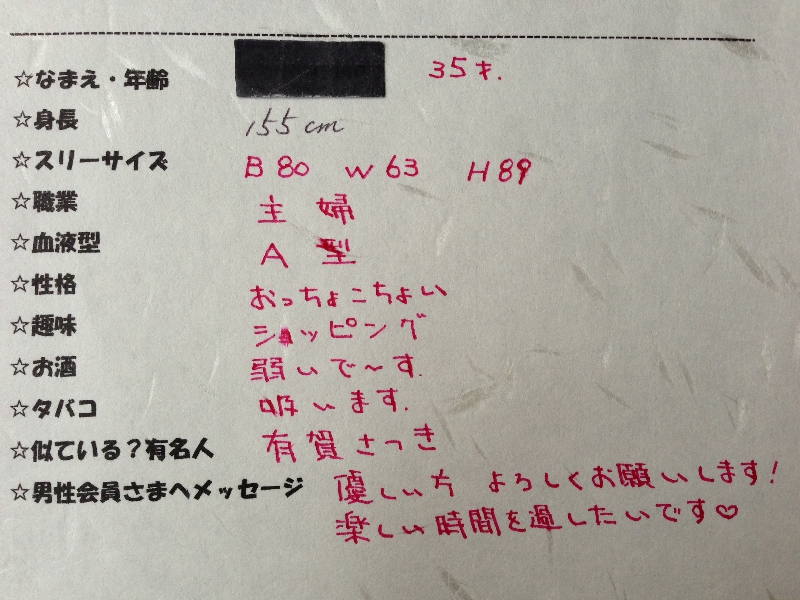 ☆なまえ・年齢 35才.
☆身長 155cm
☆スリーサイズ B 80 W 63 H 89
☆職業 主婦
☆血液型 A型
☆性格 おっちょこちょい
☆趣味 ショッピング
☆お酒 弱いで〜す.
☆タバコ 吸います.
☆似ている？有名人 有賀さつき
☆男性会員さまへメッセージ 優しい方 よろしくお願いします!
楽しい時間を過したいです♡